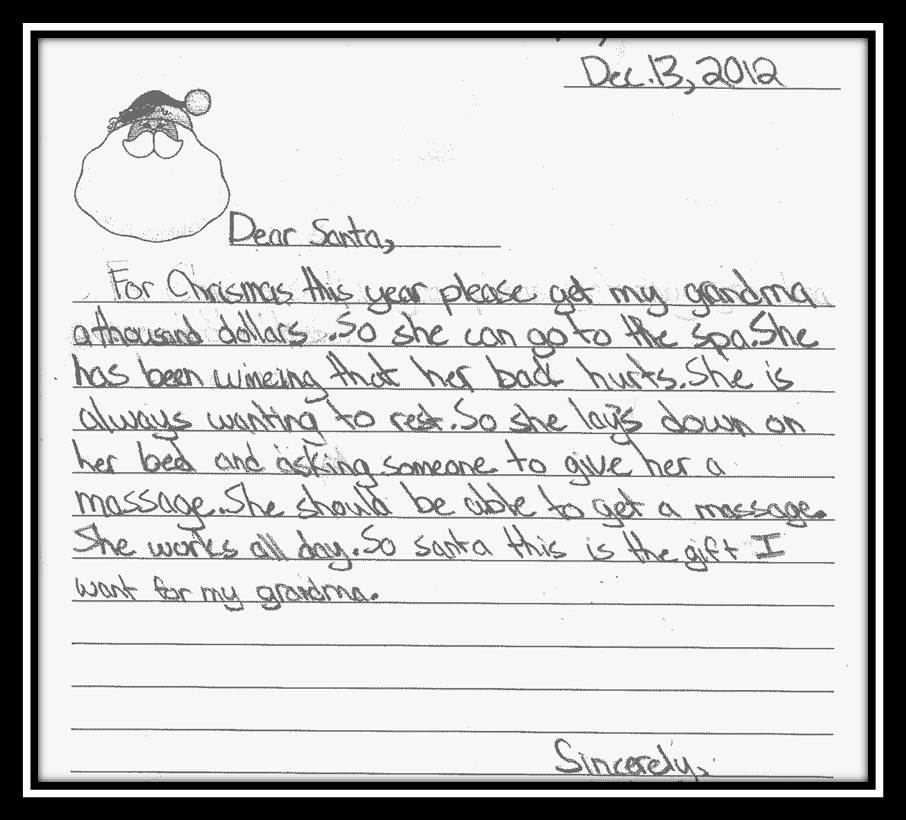 Dec. 13, 2012
Dear Santa,
For Chrismas this year please get my grandma
a thousand dollars .So she can go to the spa.She
has been wineing that her back hurts.She is
always wanting to rest.So she lay's down on
her bed and asking someone to give her a
massage.She should be able to get a massage.
She works all day.So santa this is the gift I
want for my grandma.
Sincerely,